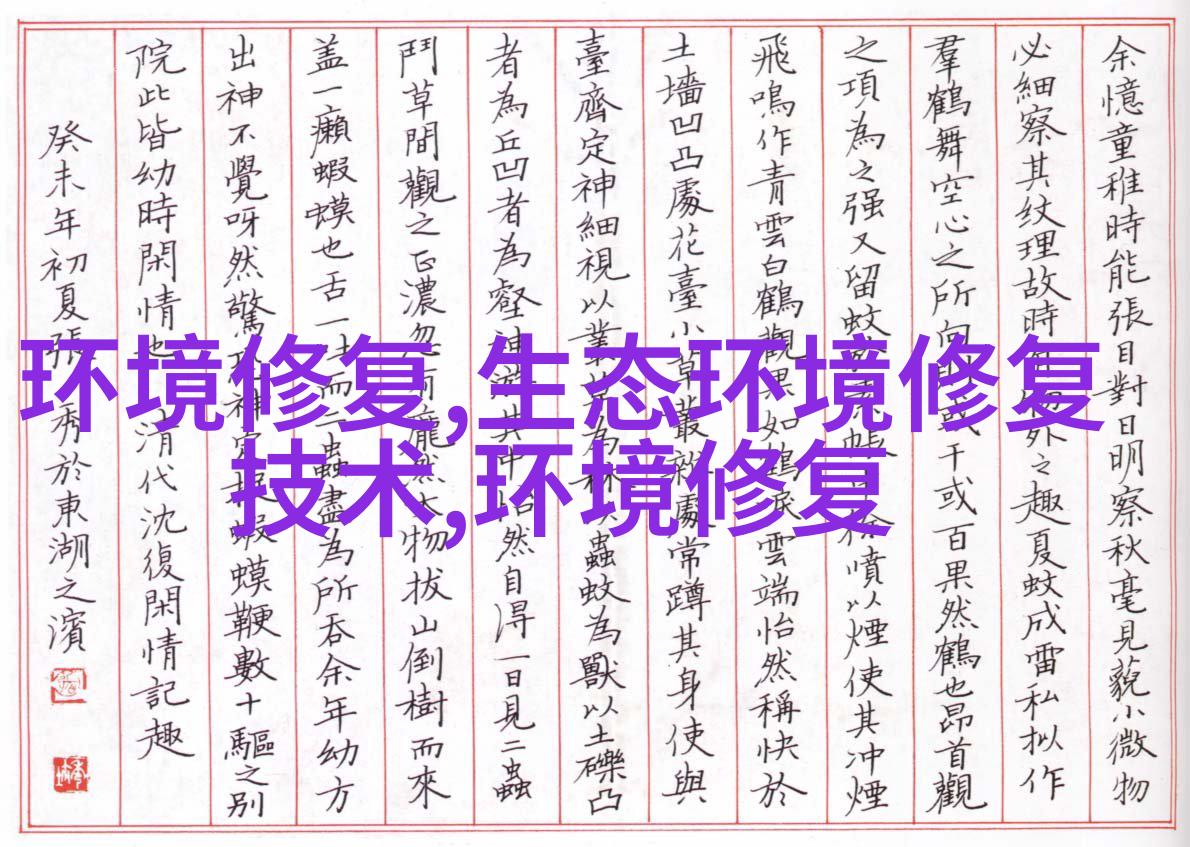 余憶童稚時能張目對日明察秋毫見藐小微物
必細察其纹理故時外之趣夏蚊成雷私拟作
羣鶴舞空心之所向或千或百果然鶴也昂首觀
之項為之强又留蚊帳噴以煙使其冲煙
飛鳴作青雲白鶴觀果如鶴唳雲端怡然稱快於
土墻凹凸處花臺小草叢雜處常蹲其身使與
臺齊定神細視以叢為林蟲蚊為獸以土礫凸
者為丘凹者為壑神遊其中怡然自得一日見二蟲
鬥草間觀之正濃忽有龐然大物拔山倒樹而來
盖一癩蝦蟆也舌一吐而二蟲盡為所吞余年幼方
出神不覺呀然驚神定捉蝦蟆鞭數十驅之别
院此皆幼時閑情也 清代沈復閑情記趣
癸未年初夏張秀於東湖之濱
环境修复,生态环境修复
技术,环境修复